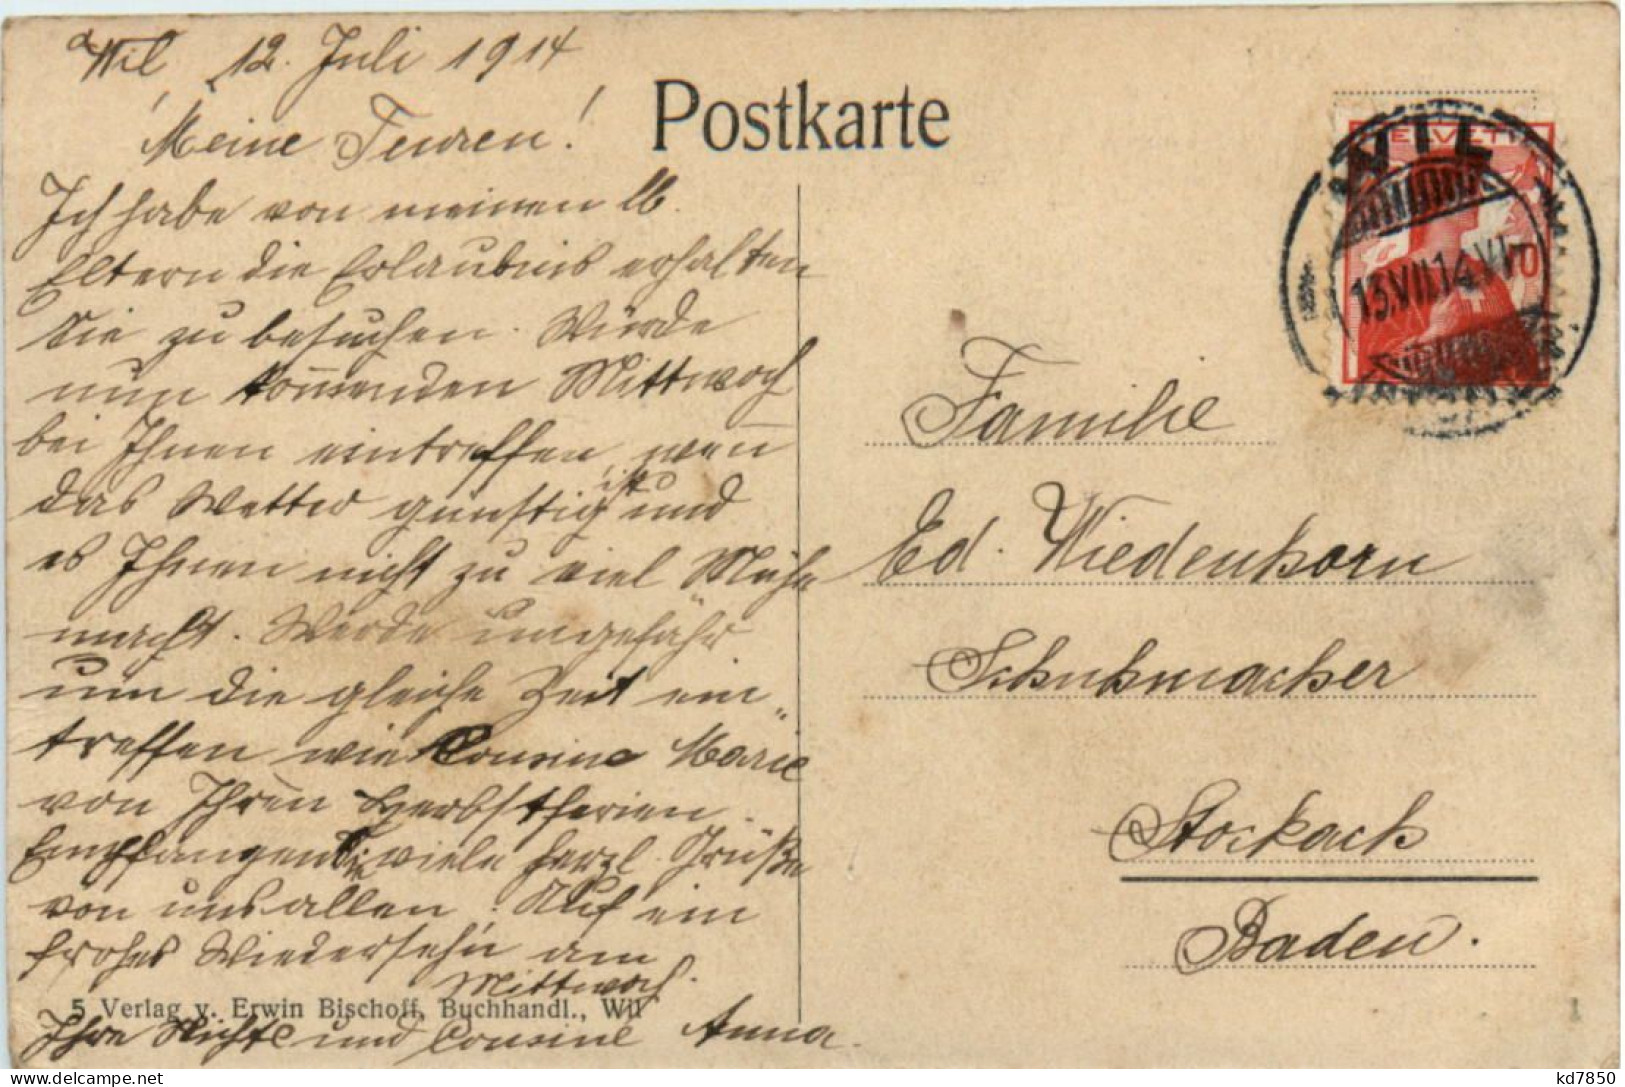 Wil 12. Juli 1914
Meine Teuren!
Ich habe von meinen lb.
Eltern die Erlaubnis erhalten
Sie zu besuchen. Würde
nun kom̄enden Mittwoch
bei Ihnen eintreffen, wen̄
das Wetter günstig ist und
es Ihnen nicht zu viel Mühe
macht. Werde ungefähr
um die gleiche Zeit ein„
treffen wie Cousine Marie
von Ihren Herbstferien.
Empfangen Sie viele herzl. Grüße
von uns allen. Auf ein
frohes Wiederseh'n am
Mittwoch.
Ihre Nichte und Cousine Anna.
5 Verlag v. Erwin Bischoff, Buchhandl., Wil
Postkarte
HELVETIA
WIL
13.VII.14.VI
10
Familie
Ed. Wiedenhorn
Schuhmacher
Stockach
Baden.
1
kd7850